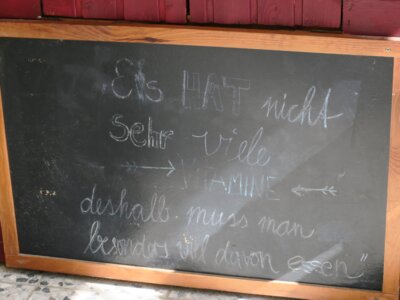 Eis HAT nicht
sehr viele
VITAMINE
deshalb muss man
besonders viel davon essen"